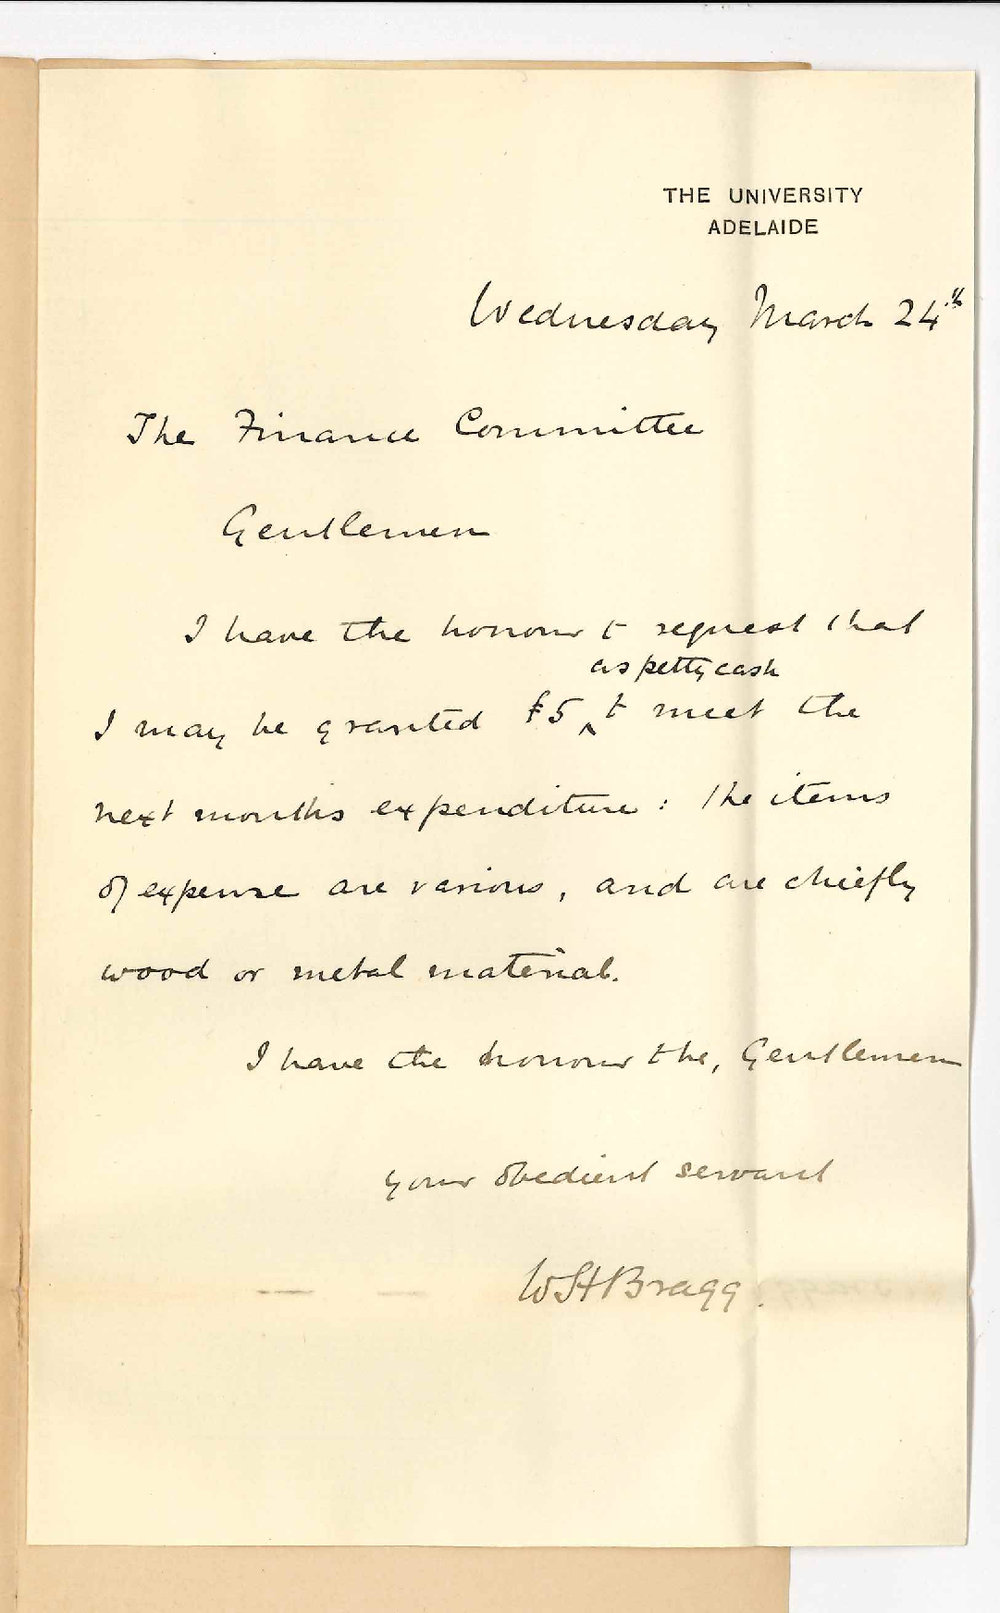 THE UNIVERSITY
ADELAIDE
Wednesday March 24th
The Finance Committee
Gentlemen
I have the honour to request that
as petty cash
I may be granted £5 ^ to meet the
next months expenditure: the items
of expense are various, and are chiefly
wood or metal material.
I have the honour to be, Gentlemen
your obedient servant
WHBragg.